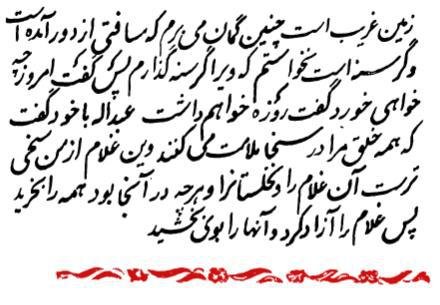 زمین غریب است چنین گمان می برم که مسافتی از دور آمده است
و گرسنه است نخواستم که ویرا گرسنه گذارم پس گفت امروز چه
خواهی خورد گفت روزه خواهم داشت عبداله با خود گفت
که همه خلق مرا در سخا ملامت می کنند وین غلام از من سخی
ترست آن غلام را و نخلستانرا و هرچه در آنجا بود همه را بخرید
پس غلام را آزاد کرد و آنها را بوی بخشید